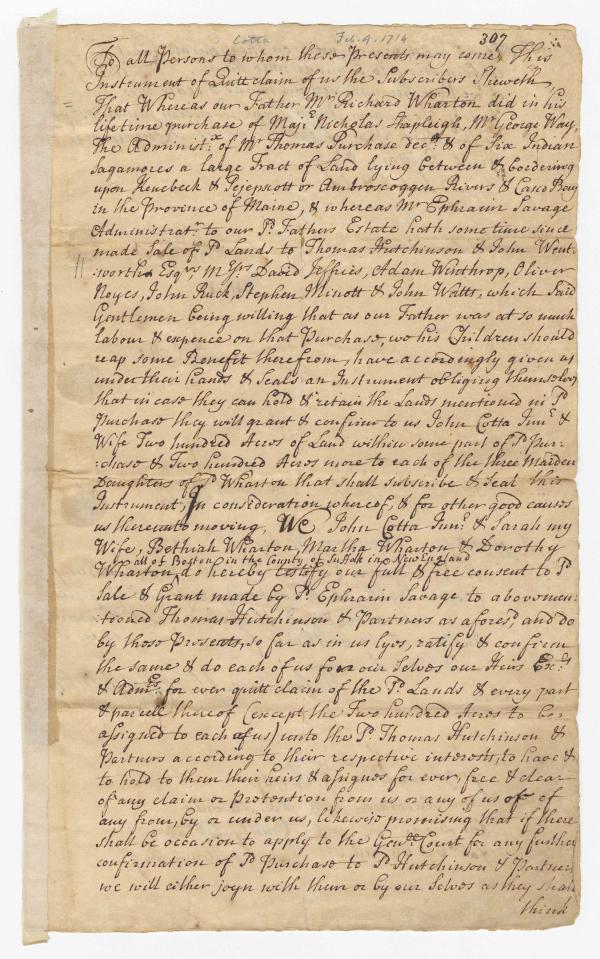 Cotta Feb. 9. 1714 307
To all Persons to whom these Presents may come, This
Instrument of Quitt claim of us the Subscribers Sheweth
That Whereas our Father Mr Richard Wharton did in his
life time purchase of Majr Nicholas Shapleigh, Mr George Way,
the Administx of Mr Thomas Purchase decd & of Six Indian
Sagamores a large Tract of Land lying between & bordering
upon Kenebeck & Pejepscott or Ambroscoggen Rivers & Casco Bay
in the Province of Maine, & whereas Mr Ephraim Savage
Administratr to our sd Fathers Estate hath some time since
made Sale of sd Lands to Thomas Hutchinson & John Went-
:worth Esqrs Messrs David Jeffries, Adam Winthrop, Oliver
Noyes, John Ruck, Stephen Minott & John Watts, which said
Gentlemen being willing that as our Father was at so much
labour & expence on that Purchase, we his Children should
reap some Benefit therefrom, have accordingly given us
under their hands & Seals an Instrument obliging themselves
that in case they can hold & retain the Lands mentioned in sd
Purchase they will grant & confirm to us John Cotta Junr &
Wife Two hundred Acres of Land within some part of sd Pur-
:chase & Two hundred Acres more to each of the three Maiden
Daughters of sd Wharton that shall subscribe & Seal this
Instrument, In consideration whereof, & for other good causes
us thereunto moving, We John Cotta Junr & Sarah my
Wife, Bethiah Wharton, Martha Wharton & Dorothy
all of Boston in the County of Suffolk in New England
Wharton, do hereby testify our full & free consent to sd
Sale & Grant made by sd Ephraim Savage to abovemen-
:tioned Thomas Hutchinson & Partners as aforesd, and do
by these Presents, so far as in us lyes, ratify & confirm
the same & do each of us for our Selves our Heirs Excrs
& Admrs for ever quitt claim of the sd Lands & every part
& parcell thereof (except the Two hundred Acres to be
assigned to each of us) unto the sd Thomas Hutchinson &
Partners according to their respective interests, to have &
to hold to them their heirs & assignes for ever, free & clear
of any claim or Pretention from us or any of us or of
any from, by or under us, likewise promising that if there
shall be occasion to apply to the Genll Court for any further
confirmation of sd Purchase to sd Hutchinson & Partners
we will either joyn with them or by our Selves as they shall
think